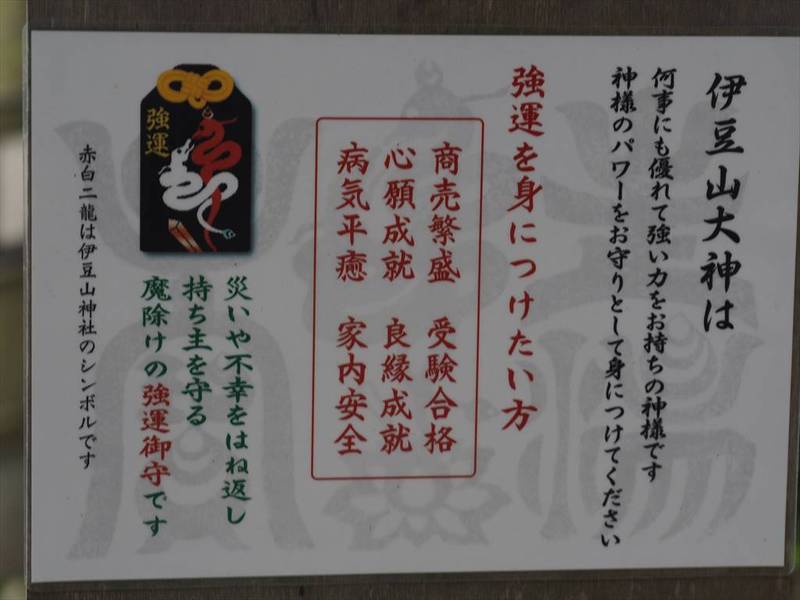 伊豆山大神は
何事にも優れて強い力をお持ちの神様です
神様のパワーをお守りとして身につけてください
強運を身につけたい方
商売繁盛 受験合格
心願成就 良縁成就
病気平癒 家内安全
強運
災いや不幸をはね返し
持ち主を守る
魔除けの強運御守です
赤白二龍は伊豆山神社のシンボルです